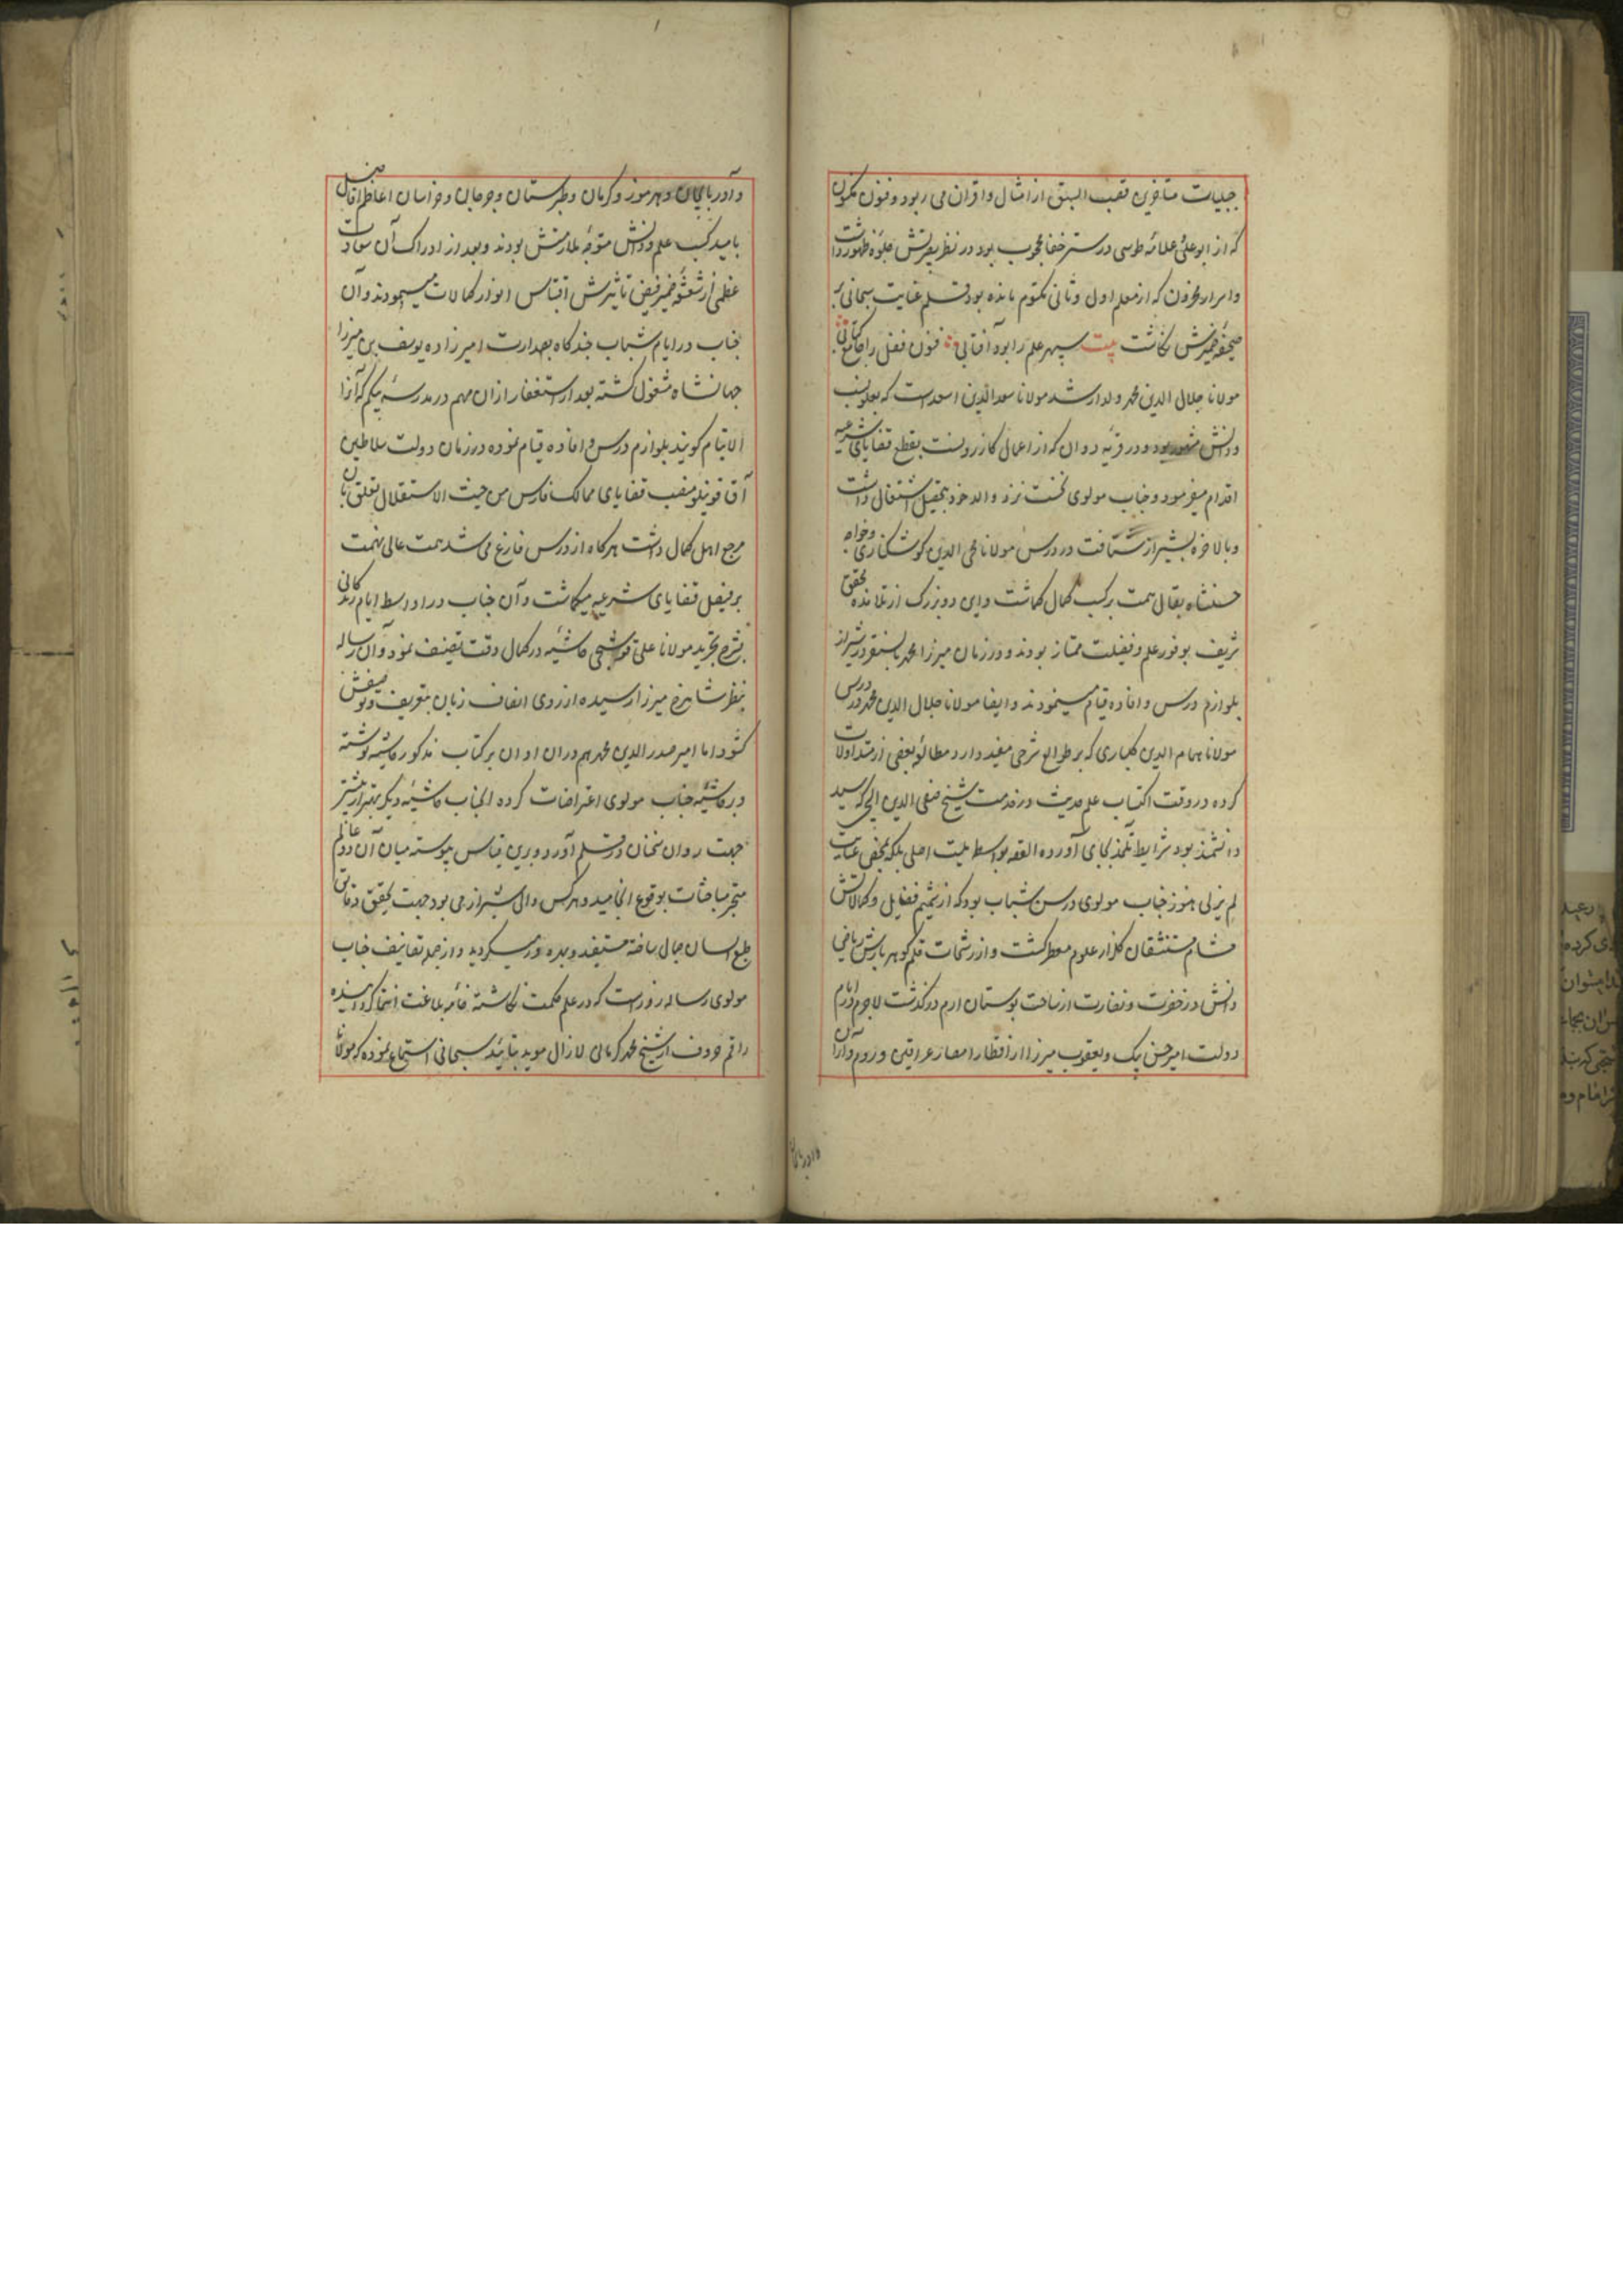 جبلیات متاخرین قصب السبق از امثال و اقران می ربود و فنون مکنون
که از ابوعلی و علامه طوسی در ستر خفا محجوب بود در نظر بصیرتش جلوه ظهور داشت
و اسرار مخزون که از معلم اول و ثانی مکتوم مانده بود قلم عنایت سبحانی بر
صحیفه ضمیرش نگاشت بیت سپهر علم را بود آفتابی فنون فضل را جامع کتابی
مولانا جلال الدین محمد ولد ارشد مولانا سعد الدین اسعد است که بعلو نسب
و دانش مشهور بود و در قریه دوان که از اعمال کازرونست بقطع قضایای شرعیه
اقدام میفرمود و جناب مولوی نخست نزد والد خود بتحصیل اشتغال داشت
و بالاخره بشیراز شتافت در درس مولانا محی الدین کوشکناری و خواجه
حسنشاه بقال همت بر کسب کمال گماشت و این دو بزرگ از تلامذه محقق
شریف بوفور علم و فضیلت ممتاز بودند و در زمان میرزا محمد بایسنقر در شیراز
بلوازم درس و افاده قیام مینمودند و ایضا مولانا جلال الدین محمد در درس
مولانا همام الدین کلباری که بر طوالع شرحی مفید دارد مطالعه بعضی از متداولات
کرده در وقت اکتساب علم حدیث در خدمت شیخ صفی الدین ایجی که سید
دانشمند بود شرایط تلمذ بجای آورده القصه بواسطه اصلی بلکه بمحض عنایت
لم یزلی هنوز جناب مولوی در سن شباب بود که از شمیم فضایل و کمالاتش
مشام مستنشقان گلزار علوم معطر گشت و از رشحات قلم گوهر بارش ریاض
دانش در خضرت و نضارت از ساحت بوستان ارم درگذشت لاجرم در ایام
دولت امیر حسن بیک و یعقوب میرزا از اقطار امصار عراقین و روم و اران
و آذربایجان
و آذربایجان و هرموز و کرمان و طبرستان و جرجان و خراسان اعاظم افاضل
بامید کسب علم و دانش متوجه ملازمتش بودند و بعد از ادراک آن سعادت
عظمی از اشعه ضمیر فیض تاثیرش اقتباس انوار کمالات مینمودند و آن
جناب در ایام شباب چندگاه بصدارت امیرزاده یوسف بن میرزا
جهانشاه مشغول گشته بعد از استغفار از آن مهم در مدرسه بیکم که آنرا
الایتام گویند بلوازم درس و افاده قیام نموده در زمان دولت سلاطین
آق قوینلو منصب قضایای ممالک فارس من حیث الاستقلال تعلق بآن
مرجع اهل کمال داشت هرگاه از درس فارغ می شد همت عالی نهمت
بر فیصل قضایای شرعیه میگماشت و آن جناب در اواسط ایام زندگانی
بشرح تجرید مولانا علی قوشچی حاشیه در کمال دقت تصنیف نمود و آن رساله
بنظر میرزا رسیده از روی انصاف زبان بتعریف و توصیفش
گشود اما امیر صدر الدین محمد هم در آن اوان بر کتاب مذکور حاشیه نوشته
و بر حاشیه جناب مولوی اعتراضات کرده آنجناب حاشیه دیگر بهتر از پیشتر
جهت رد آن سخنان در قلم آورد و برین قیاس پیوسته میان آن دو عالم
متبحر مباحثات بوقوع انجامید و هر کس والی شیراز می بود جهت تحقیق دقایق
طبع ایشان مجال یافته مستفید و بهره ور میگردید و از جمله تصانیف جناب
مولوی رساله زوراست که در علم حکمت نگاشته خامه بلاغت انتما گردانیده
راقم حروف از شیخ محمد کرمانی لازال موید بتائید سبحانی استماع نموده که مولانا